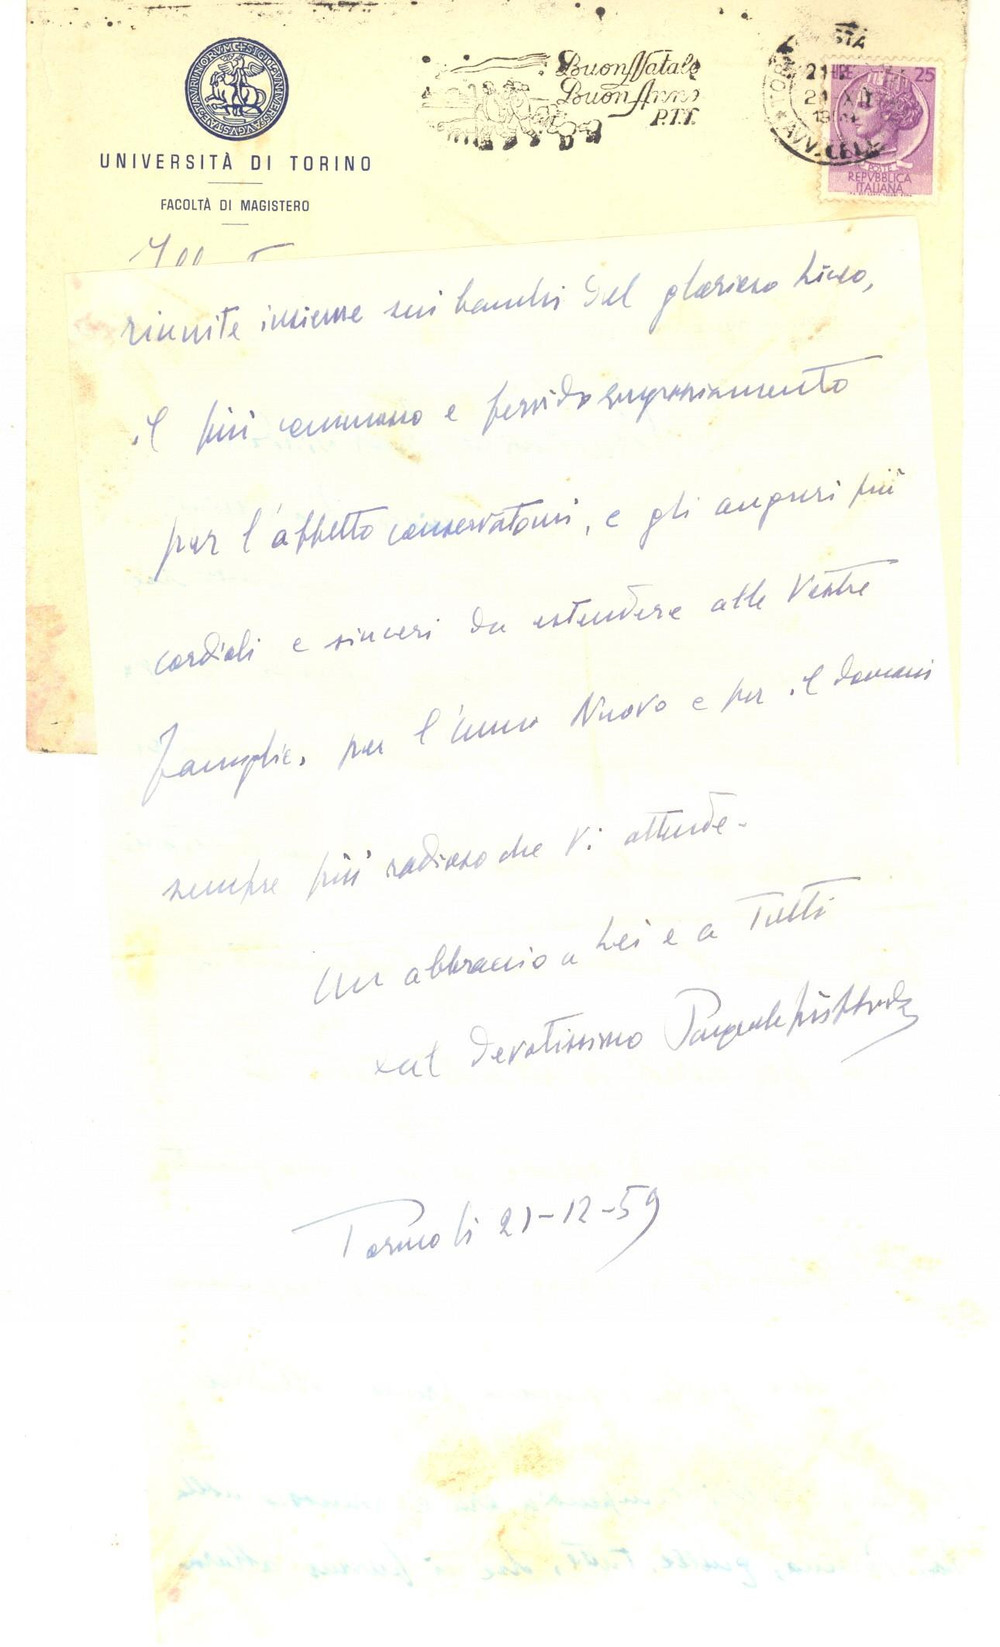 SIGILLVM VNIVERSITATIS AVGVSTAE TAVRINORVM
UNIVERSITÀ DI TORINO
FACOLTÀ DI MAGISTERO
Buon Natale
Buon Anno
P.T.T.
21
LIRE 25
POSTE
REPVBBLICA
ITALIANA
Ill
riunite insieme sui banchi del glorioso Liceo,
il più commosso e fervido ringraziamento
per l'affetto conservatomi, e gli auguri più
cordiali e sinceri da estendere alle Vostre
Famiglie, per l'Anno Nuovo e per il domani
sempre più radioso che Vi attende.
Un abbraccio a Lei e a Tutti
dal devotissimo Pasquale
Torino li 21-12-59